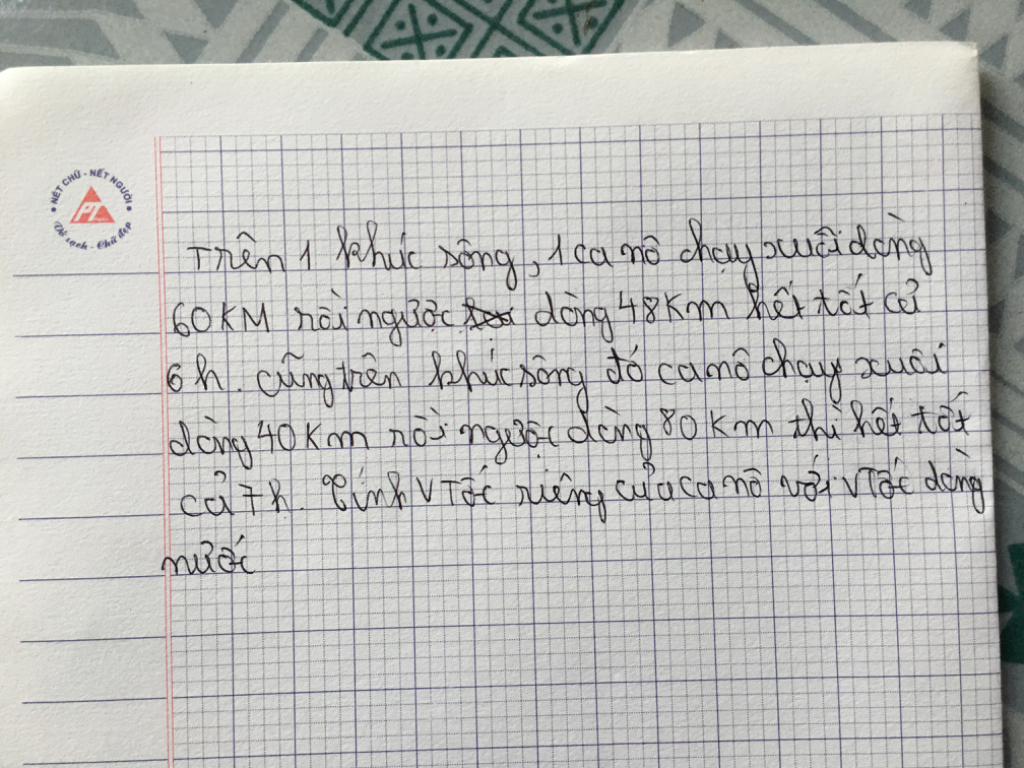 NÉT CHỮ - NẾT NGƯỜI
PT
Vở sạch - Chữ đẹp
Trên 1 khúc sông, 1 ca nô chạy xuôi dòng
60KM rồi ngược dòng 48Km hết tất cả
6h. cũng trên khúc sông đó ca nô chạy xuôi
dòng 40Km rồi ngược dòng 80Km thì hết tất
cả 7h. Tính VTốc riêng của ca nô với VTốc dòng
nước